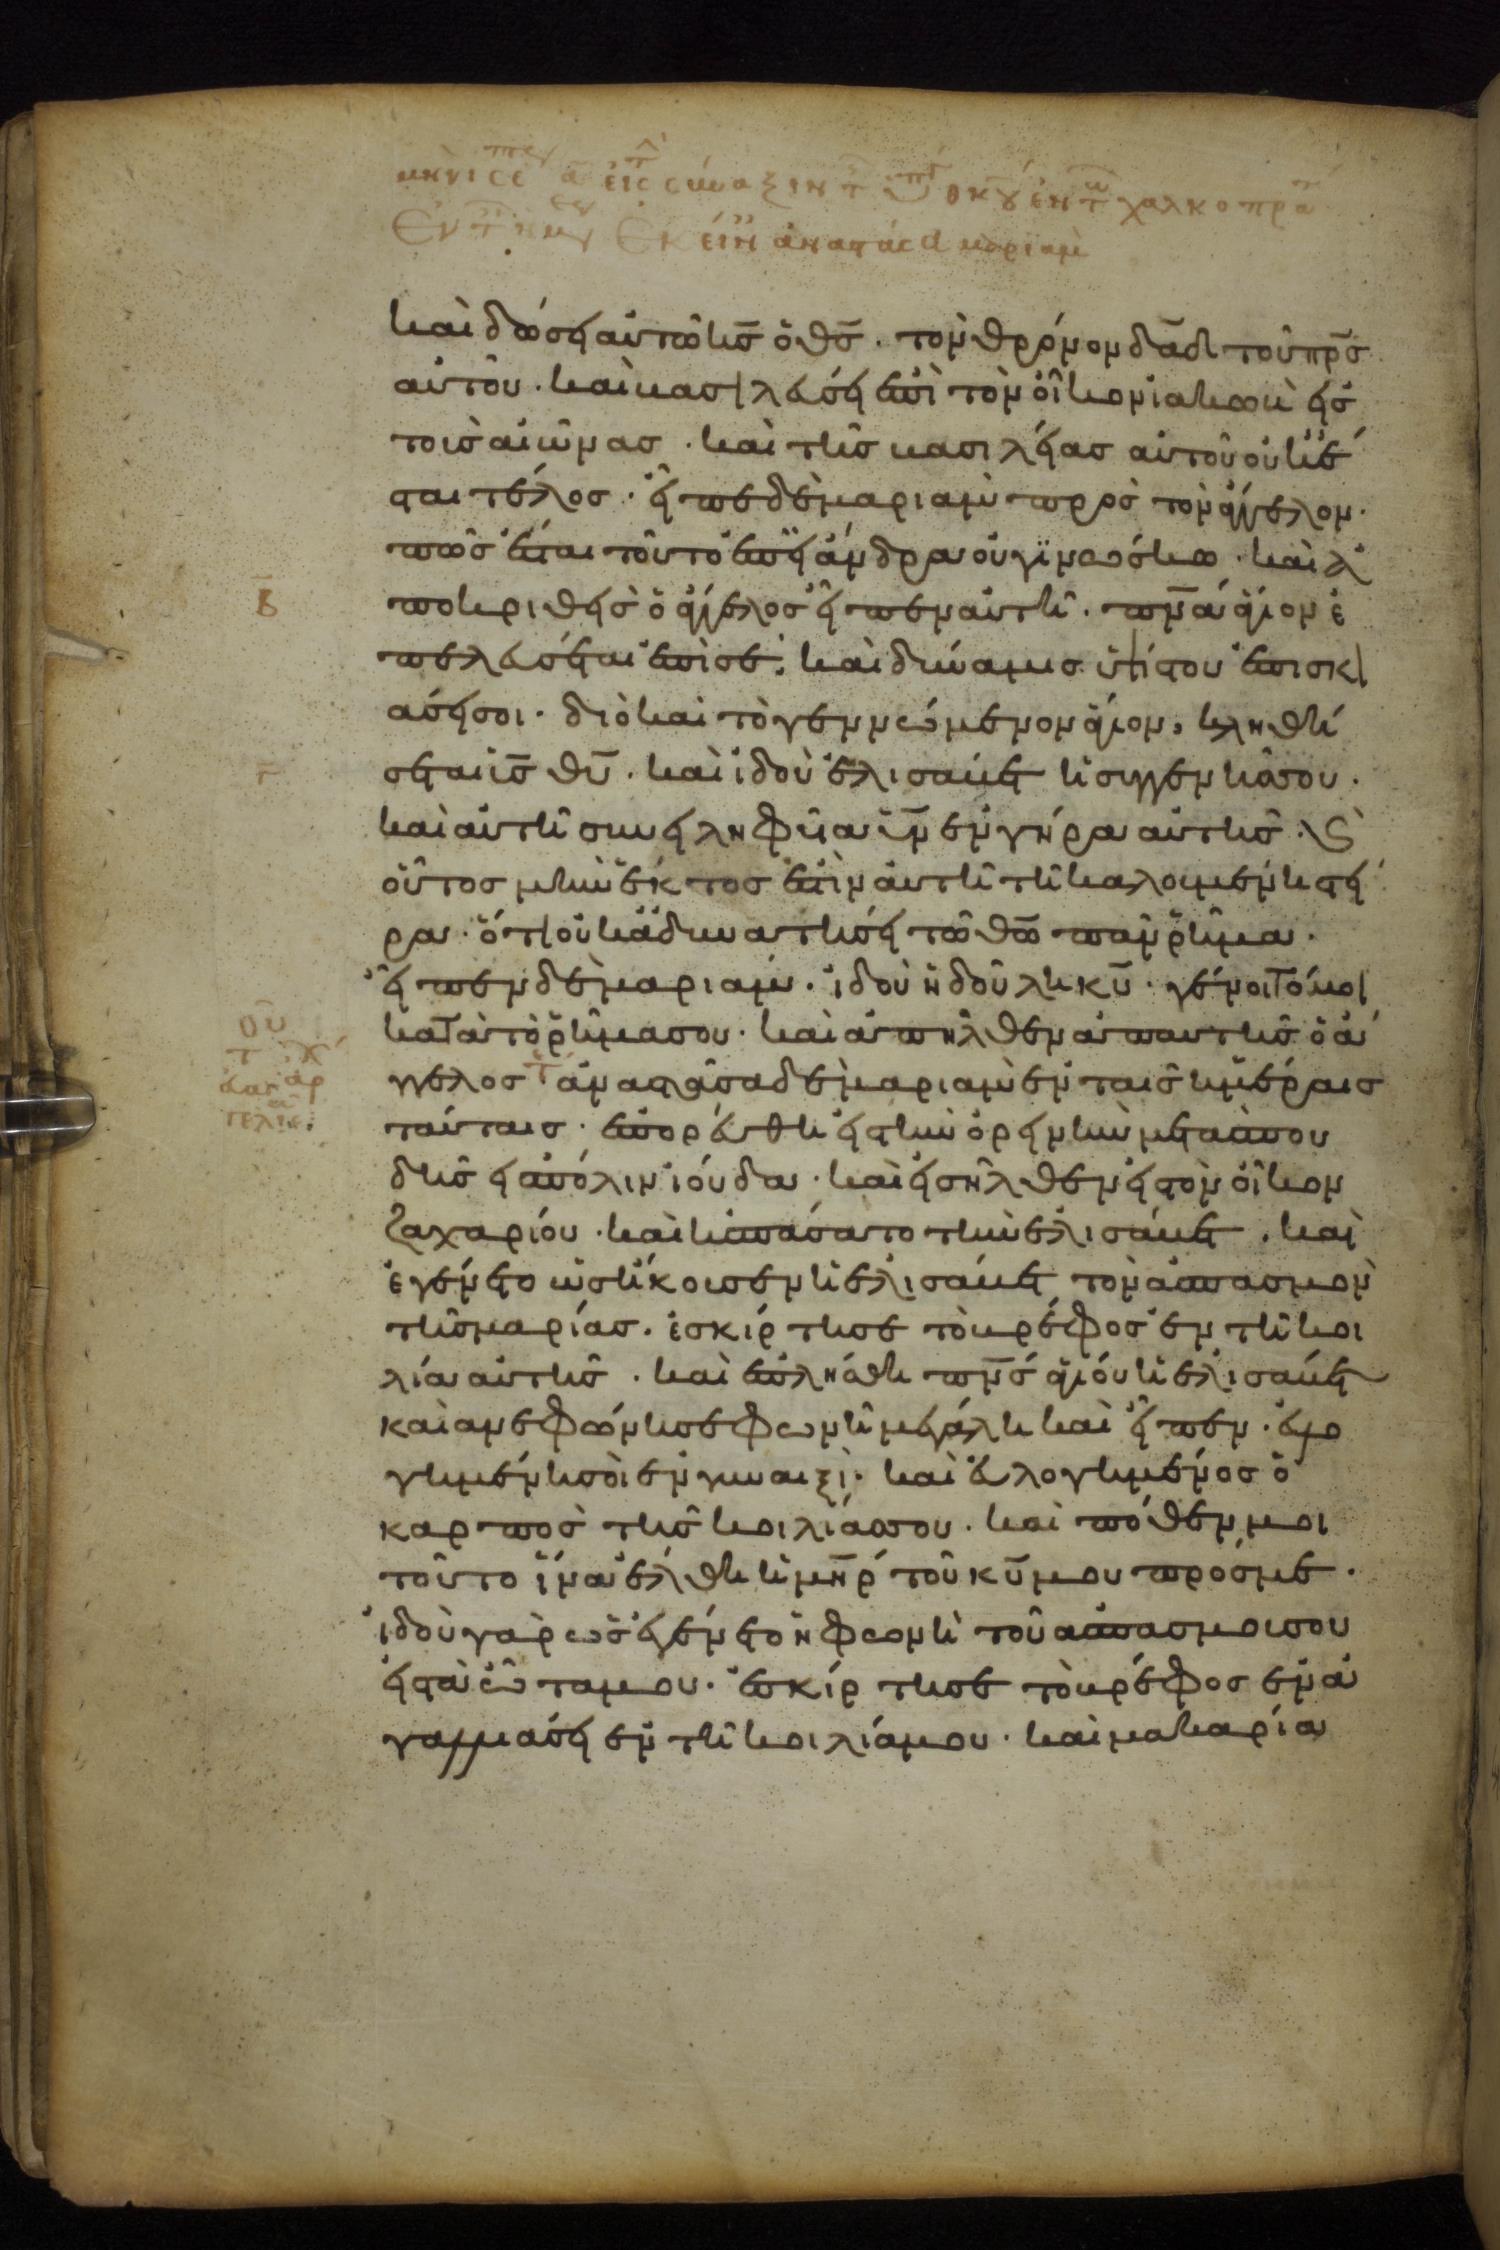 καὶ δώσει αὐτῶ κ̅ς ὁ θ̅ς. τὸν θρόνον δα̅δ τοῦ π̅ρς
αὐτοῦ. καὶ βασιλεύσει ἐπὶ τὸν οἶκον ἰακὼβ εἰς
τοὺς αἰῶνας. καὶ τῆς βασιλείας αὐτοῦ οὐκ ἔ
σται τέλος. εἶπε δὲ μαριὰμ πρὸς τὸν ἄγγελον.
πῶς ἔσται τοῦτο ἐπεὶ ἄνδρα οὐ γινώσκω. καὶ ἀ
ποκριθεὶς ὁ ἄγγελος εἶπεν αὐτῆ. π̅να ἅγιον ἐ
πελεύσεται ἐπὶ σέ. καὶ δύναμις ὑψίστου ἐπισκι
άσει σοι. διὸ καὶ τὸ γεννώμενον ἅγιον, κληθή
σεται υ̅ς θ̅υ. καὶ ἰδοὺ ἐλισάβετ ἡ συγγενής σου.
καὶ αὐτὴ συνειληφυῖα υ̅ν ἐν γήρα αὐτῆς. ϗ
οὗτος μὴν ἕκτος ἐστὶν αὐτῆ τῆ καλουμένη στεί
ρα. ὅτι οὐκ ἀδυνατήσει τῶ θ̅ω πᾶν ῥῆμα.
εἶπεν δὲ μαριάμ. ἰδοὺ ἡ δούλη κ̅υ. γένοιτό μοι
κατὰ τὸ ῥῆμα σου. καὶ ἀπῆλθεν ἀπ αὐτῆς ὁ ἄ
γγελος ἀναστᾶσα δὲ μαριὰμ ἐν ταῖς ἡμέραις
ταύταις. ἐπορεύθη εἰς τὴν ὀρεινὴν μετὰ σπου
δῆς εἰς πόλιν ἰούδα. καὶ εἰσῆλθεν εἰς τὸν οἶκον
ζαχαρίου. καὶ ἠσπάσατο τὴν ἐλισάβετ. καὶ
ἐγένετο ὡς ἤκουσεν ἡ ἐλισάβετ τὸν ἀσπασμὸν
τῆς μαρίας. ἐσκίρτησε τὸ βρέφος ἐν τῆ κοι
λία αὐτῆς. καὶ ἐπλήσθη π̅νς ἁγίου ἡ ἐλισάβετ
καὶ ἀνεφώνησε φωνῆ μεγάλη καὶ εἶπεν. εὐλο
γημένη σὺ ἐν γυναιξὶ. καὶ εὐλογημένος ὁ
καρπὸς τῆς κοιλίας σου. καὶ πόθεν μοι
τοῦτο ἵνα ἔλθη ἡ μ̅ηρ τοῦ κ̅υ μου πρός με.
ἰδοὺ γὰρ ὡς ἐγένετο ἡ φωνὴ τοῦ ἀσπασμοῦ σου
εἰς τὰ ὦτα μου. ἐσκίρτησε τὸ βρέφος ἐν ἀ
γαλλιάσει ἐν τῆ κοιλία μου. καὶ μακαρία